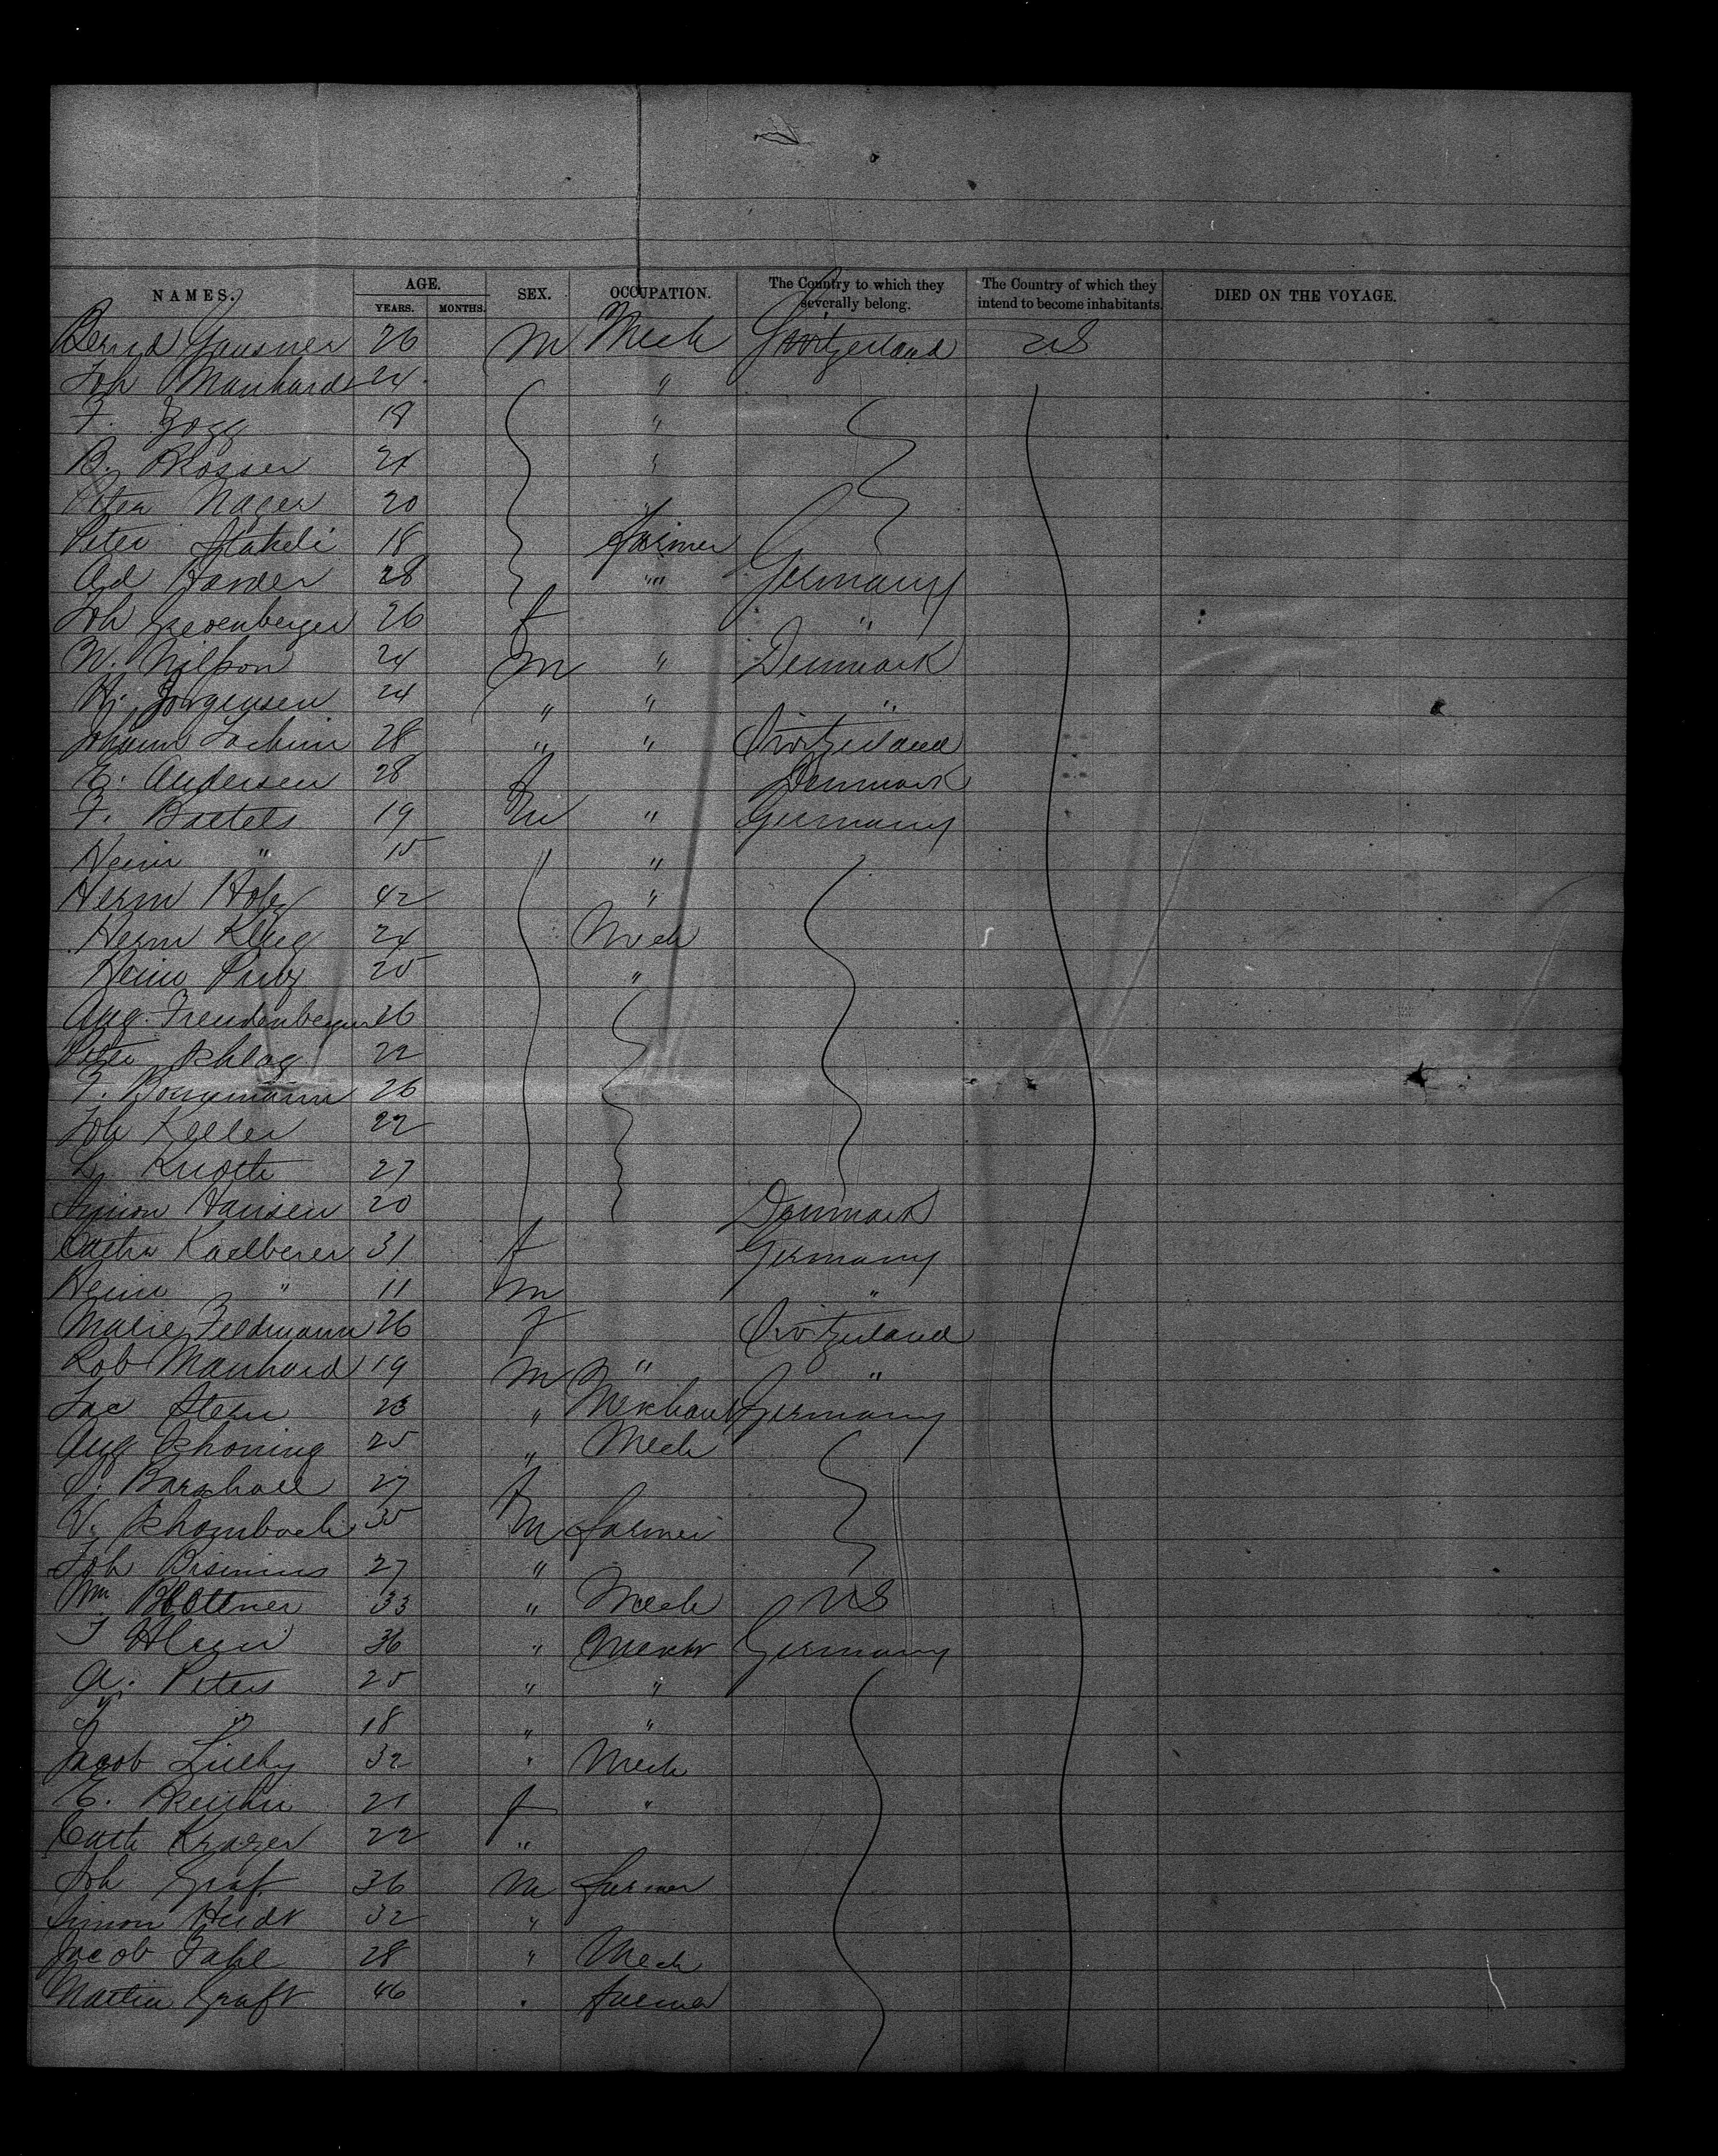 NAMES. AGE. YEARS. MONTHS. SEX. OCCUPATION. The Country to which they severally belong. The Country of which they intend to become inhabitants. DIED ON THE VOYAGE.
26 M Mech Switzerland US
Joh Manhard 24 "
F. Zogg 18 "
B. 21 "
Peter Nager 20
Peter Stakeli 18 farmer
Ad Harder 28 " " Germany
Joh 26 f "
N. Nilson 24 M " Denmark
H. Jorgensen 24 " " "
Johann 28 " " Switzerland
E. Andersen 28 f Denmark
F. Bartels 19 M " Germany
Heinr " 15 "
Herm 42 "
Herm Klug 24 Mech
Heinr 25 "
Aug. Freudenberger 26
Peter Schlag 22
F. 26
Joh Keller 22
L. 27
Simon Hansen 20 Denmark
Kaelberer 31 f Germany
Heinr " 11 m "
Marie Feldmann 26 f Switzerland
Rob Manhard 19 M " "
Jac Stern 23 " Merchant Germany
Aug Schoning 25 " Mech
27 f
V. 35 M farmer
Joh 27 "
Wm 33 " Mech US
36 " Germany
A. Peters 25 " "
" 18 " "
Jacob 32 " Mech
E. 21 f "
Cath 22 "
Joh Graf 36 M farmer
Simon Heidt 32 "
Jacob 28 " Mech
Martin Graft 46 " farmer